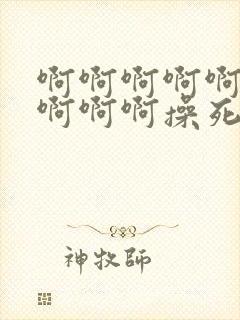 啊啊啊啊啊
啊啊啊操死
神牧師